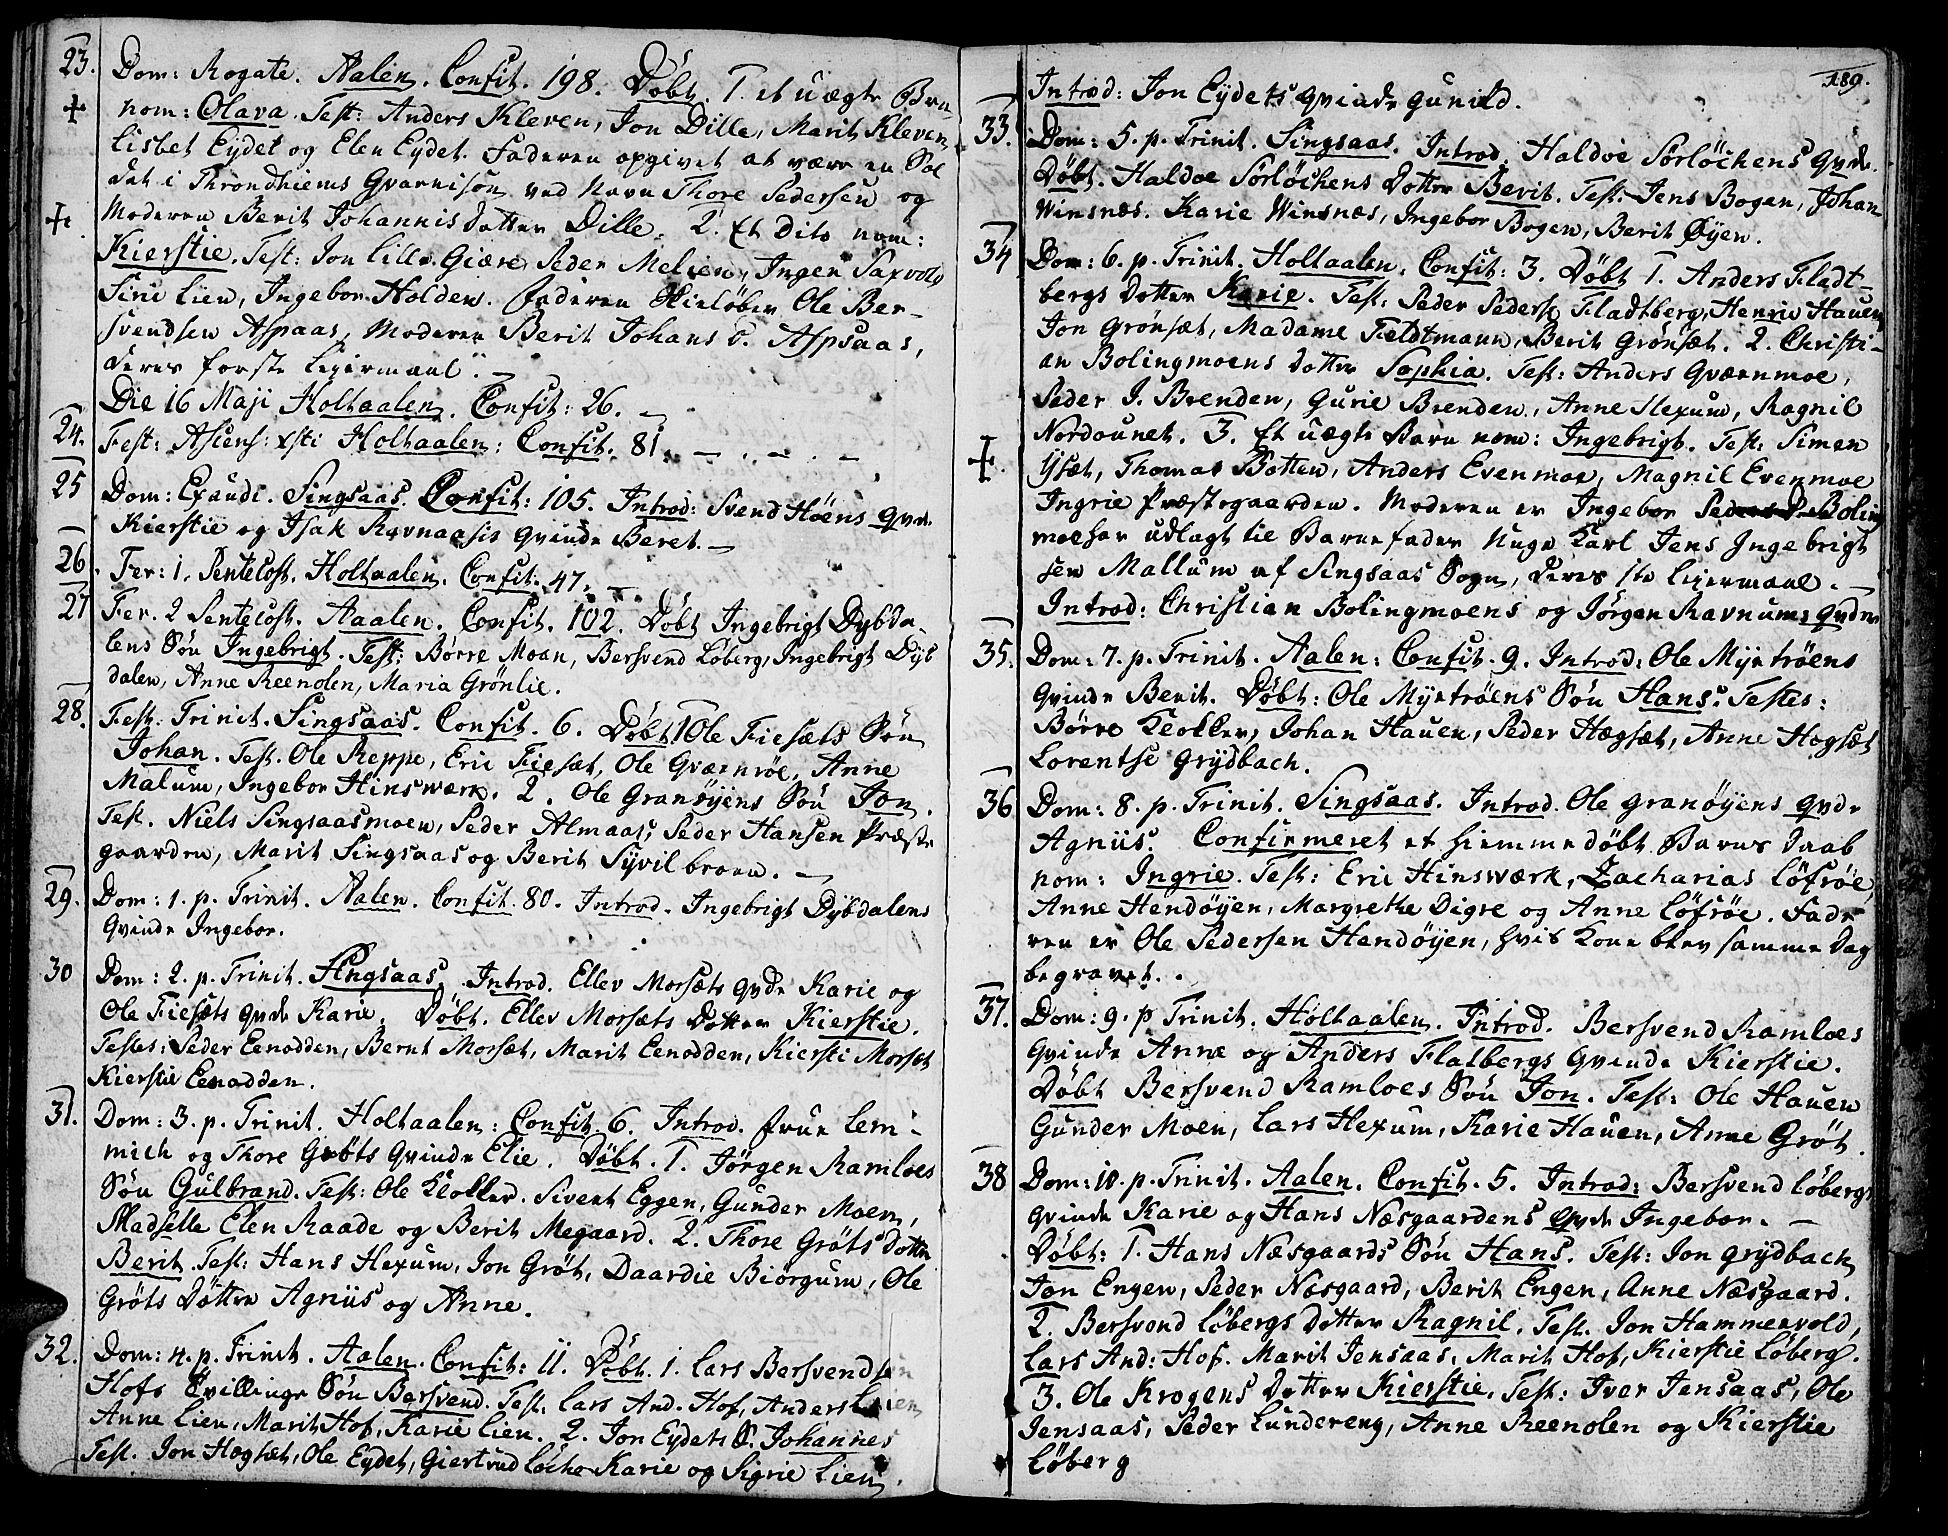 23. Dom: Rogate. Aalen. Confit. 198. Döbt 1. et uægte Bar
nom: Olava. Test: Anders Kleven, Jon Dille, Marit Kleven
Lisbet Eydet og Elen Eydet. Faderen opgivet at være en Sol
dat i Throndhiems Gvarnison ved Navn Thore Pedersen og
Moderen Berit Johannis datter Dille. 2. Et dito nom:
Kierstie. Test: Jon Lille Giære, Peder Melien, Ingen Saxvold
Siri Lien, Ingebor Holden. Faderen Skieløber Ole Ber-
svendsen Aspaas, Moderen Berit Johans D. Aspaas,
deres første Leiermaal.
Die 16 Maji Holtaalen. Confit: 26.
24. Fest: Ascens: Xsti Holtaalen: Confit. 81.
25 Dom: Exaudi. Singsaas. Confit: 105. Introd: Svend Höens Qvde
Kierstie og Isak Ravnaasis Qvinde Beret.
26. Fer: 1. Pentecost. Holtaalen. Confit. 47.
27 Fer. 2 Pentecost. Aalen. Confit. 102. Döbt Ingebrigt Dybda-
lens Sön Ingebrigt. Test: Börre Moan, Bersvend Löberg, Ingebrigt Dyb
dalen, Anne Reenolen, Maria Grönlie.
28. Fest: Trinit. Singsaas. Confit. 6. Döbt 1 Ole Fiesæts Sön
Johan. Test. Ole Reppe, Eric Fiesæt, Ole Gværnröe, Anne
Malum, Ingebor Hinswærk. 2. Ole Granöyens Sön Jon.
Test. Niels Singsaasmoen, Peder Almaas, Peder Hansen Præste
gaarden, Marit Singsaas og Berit Syvilbroen.
29. Dom: 1. p. Trinit. Aalen. Confit. 80. Introd. Ingebrigt Dybdalens
Qvinde Ingebor.
30 Dom: 2. p. Trinit. Singsaas. Introd. Ellev Morsæts Qvde Karie og
Ole Fiesæts Qvde Karie. Döbt. Ellev Morsæts Dotter Kierstie.
Testes: Peder Eenodden, Bernt Morsæt, Marit Eenodden, Kiersti Morset
Kierstie Eenodden.
31. Dom: 3. p. Trinit. Holtaalen: Confit. 6. Introd. Frue Lem-
mich og Thore Gröts Qvinde Elie. Döbt. 1. Jörgen Ramloes
Sön Gulbrand. Test: Ole Klokker. Sivert Eggen, Gunder Moen,
Madselle Elen Raade og Berit Megaard. 2. Thore Gröts Dotter
Berit. Test: Hans Hexum, Jon Gröt, Daardie Biörgum, Ole
Gröts Dötter Agniis og Anne.
32. Dom: 4. p. Trinit. Aalen. Confit: 11. Döbt. 1. Lars Bersvendsen
Hofs Tvillinge Sön Bersvend. Test. Lars And. Hof, Anders Lien
Anne Lien, Marit Hof, Karie Lien. 2. Jon Eydets S. Johannes
Test. Jon Hogset, Ole Eydet, Giertrud Karie og Sigrie Lien.
189.
Introd: Jon Eydets Qvinde Gunild.
33. Dom: 5. p. Trinit. Singsaas. Introd. Haldoe Sorlöchens Qvde.
Döbt. Haldoe Sorlöchens Dotter Berit. Test: Jens Bogen, Johan
Winsnæs. Karie Winsnæs, Ingebor Bogen, Berit Øyen.
34 Dom: 6. p. Trinit. Holtaalen. Confit: 3. Döbt 1. Anders Fladt-
bergs Dotter Karie. Test: Peder Peders. Fladtberg, Henric Hauen
Jon Grönsæt, Madame Feldtmann, Berit Grönsæt. 2. Christi-
an Bolingmoens Dotter Sophia. Test: Anders Gværnmoe,
Peder J. Brenden, Gurie Brenden, Anne Hexum, Ragnil
Nordaunet. 3. Et uægte Barn nom: Ingebrigt. Test: Simen
Ysæt, Thomas Botten, Anders Evenmoe, Magnil Evenmoe
Ingrie Præstegaarden. Moderen er Ingebor Boling
moe har udlagt til Barnefader Unge Karl Jens Ingebrigt
sen Mallum af Singsaas Sogn, deres 1te Leiermaal.
Introd: Christian Bolingmoens og Jörgen Ravnums Qvdes
35. Dom: 7. p. Trinit. Aalen: Confit. 9. Introd: Ole Myrtröens
Qvinde Berit. Döbt: Ole Myrtröens Sön Hans. Testes:
Börre Klokker, Johan Hauen, Peder Hægsæt, Anne Hogset
Lorentse Grydbach.
36 Dom: 8. p. Trinit. Singsaas. Introd. Ole Granöyens Qvde
Agniis. Confirmeret et Hiemmedöbt Barns Daab
nom: Ingrie. Test: Eric Hinswærk, Zacharias Löfröe,
Anne Hendöyen, Margrethe Digre og Anne Löfröe. Fade
ren er Ole Pedersen Hendöyen, hvis Kone blev samme Dag
begravet.
37. Dom: 9. p Trinit. Holtaalen. Introd. Bersvend Ramloes
Qvinde Anne og Anders Flatbergs Qvinde Kierstie.
Döbt Bersvend Ramloes Sön Jon. Test: Ole Hauen
Gunder Moen, Lars Hexum, Karie Hauen, Anne Gröt
38 Dom: 10. p. Trinit. Aalen. Confit. 5. Introd: Bersvend Löbergs
Qvinde Karie og Hans Næsgaardens Qvde Ingebor.
Döbt: 1. Hans Næsgaards Sön Hans. Test: Jon Grydbach
Jon Engen, Peder Næsgaard, Berit Engen, Anne Næsgaard.
2. Bersvend Löbergs Dotter Ragnil. Test. Jon Hammervold,
Lars And: Hof. Marit Jensaas, Marit Hof, Kierstie Löberg.
3. Ole Krogens Dotter Kierstie. Test: Iver Jensaas, Ole
Jensaas, Peder Lundereng, Anne Reenolen og Kierstie
Löberg